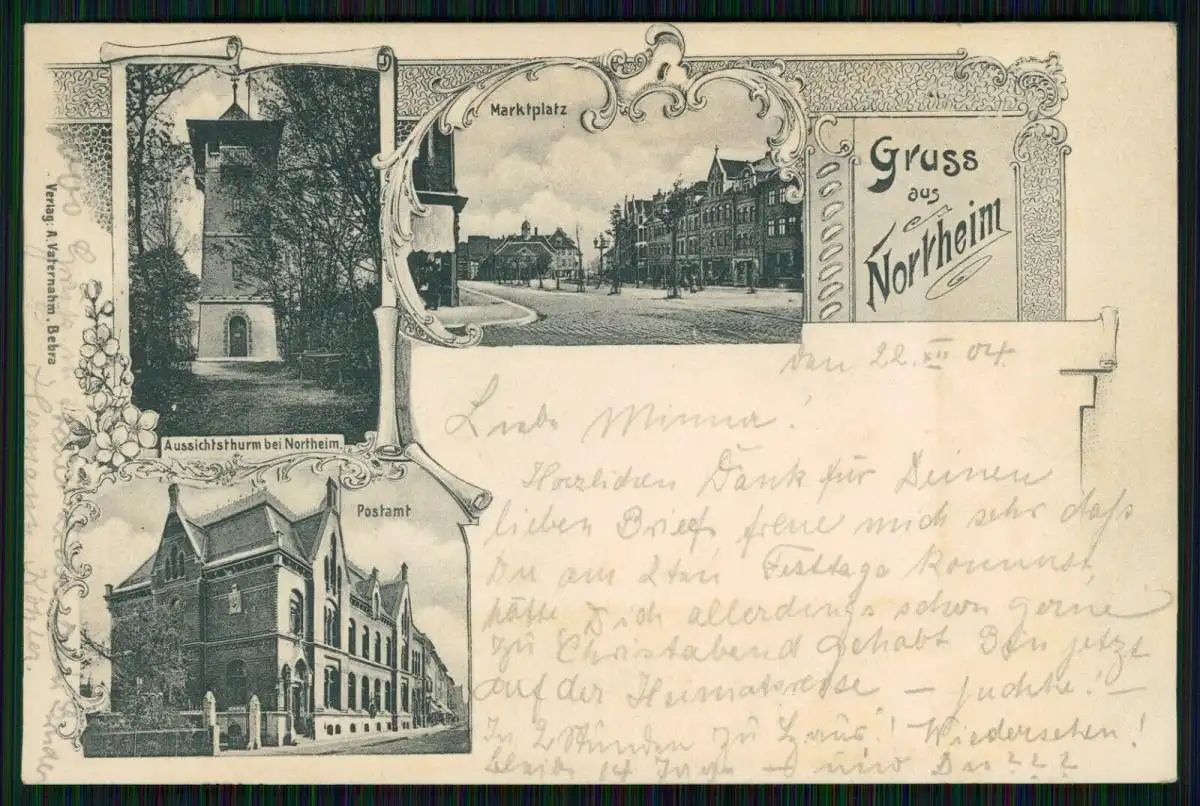 Marktplatz
Gruss
aus
Northeim
Verlag: A. Vaternahm, Bebra
Aussichtsthurm bei Northeim.
Postamt
den 22. XII 04.
Liebe Minna!
Herzlichen Dank für Deinen
lieben Brief freue mich sehr daß
Du am 2ten Festtage kommst,
hätte Dich allerdings schon gerne
zu Christabend gehabt Bin jetzt
auf der Heimatsreise – juchhe! –
In 2 Stunden zu Haus! Wiedersehen!
bleibe 14 Tage – und Du???
Hermann